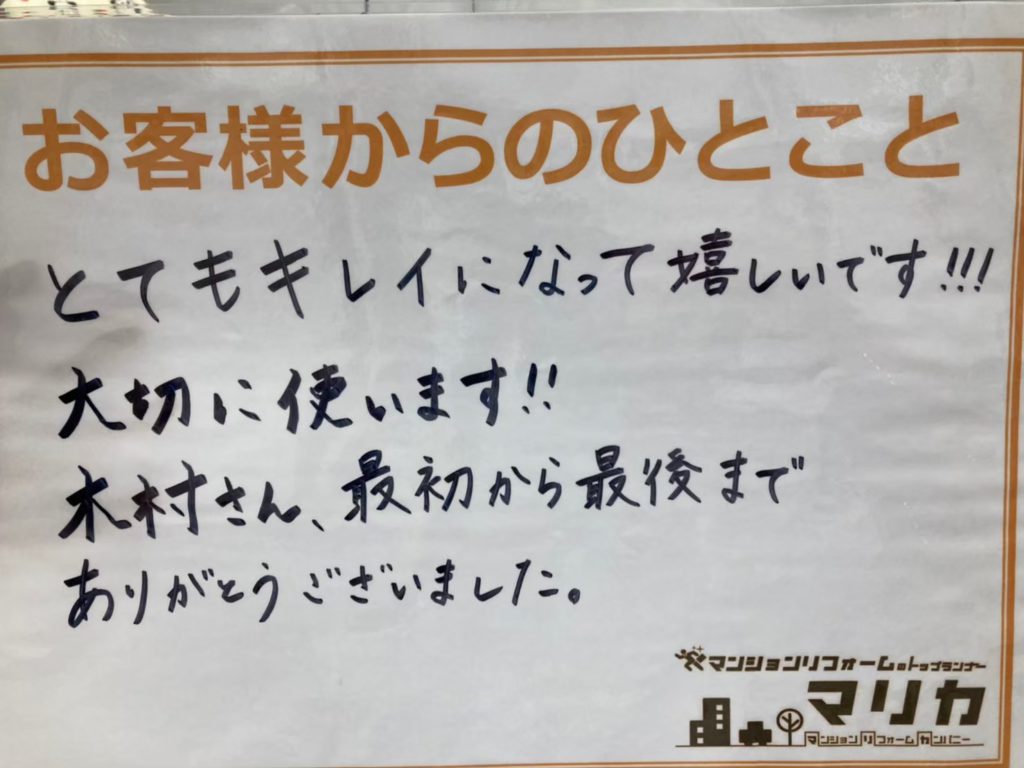 お客様からのひとこと
とてもキレイになって嬉しいです!!!
大切に使います!!
木村さん、最初から最後まで
ありがとうございました。
マンションリフォームのトップランナー
マリカ
マンションリフォームカンパニー